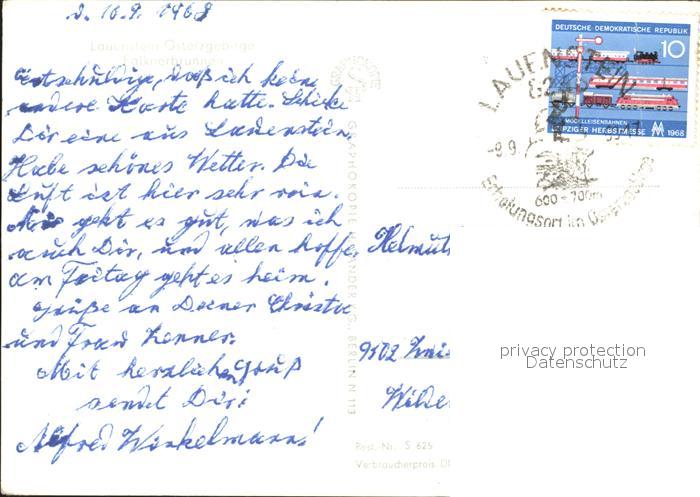 d. 10.9. 1968
Lauenstein Osterzgebirge
Falknerbrunnen
entschuldige, daß ich keine
andere Karte hatte. Schicke
Dir eine aus Lauenstein.
Habe schönes Wetter. Die
Luft ist hier sehr rein.
Mir geht es gut, was ich
auch Dir, und allen hoffe,
am Freitag geht es heim.
Grüße an Deiner Christa
und Frau Henner.
Mit herzlichen Gruß
sendet Dir:
Alfred Winkelmann!
GRAPHOKOPIE H. SANDER KG, BERLIN N 113
DEUTSCHE DEMOKRATISCHE REPUBLIK
10
MODELLEISENBAHNEN
LEIPZIGER HERBSTMESSE MM 1968
LAUENSTEIN
9.9
600-700m
Erholungsort im Osterzgebirge
Helmut
9502
Wilde
Best. Nr. S 625
Verbraucherpreis
privacy protection
Datenschutz